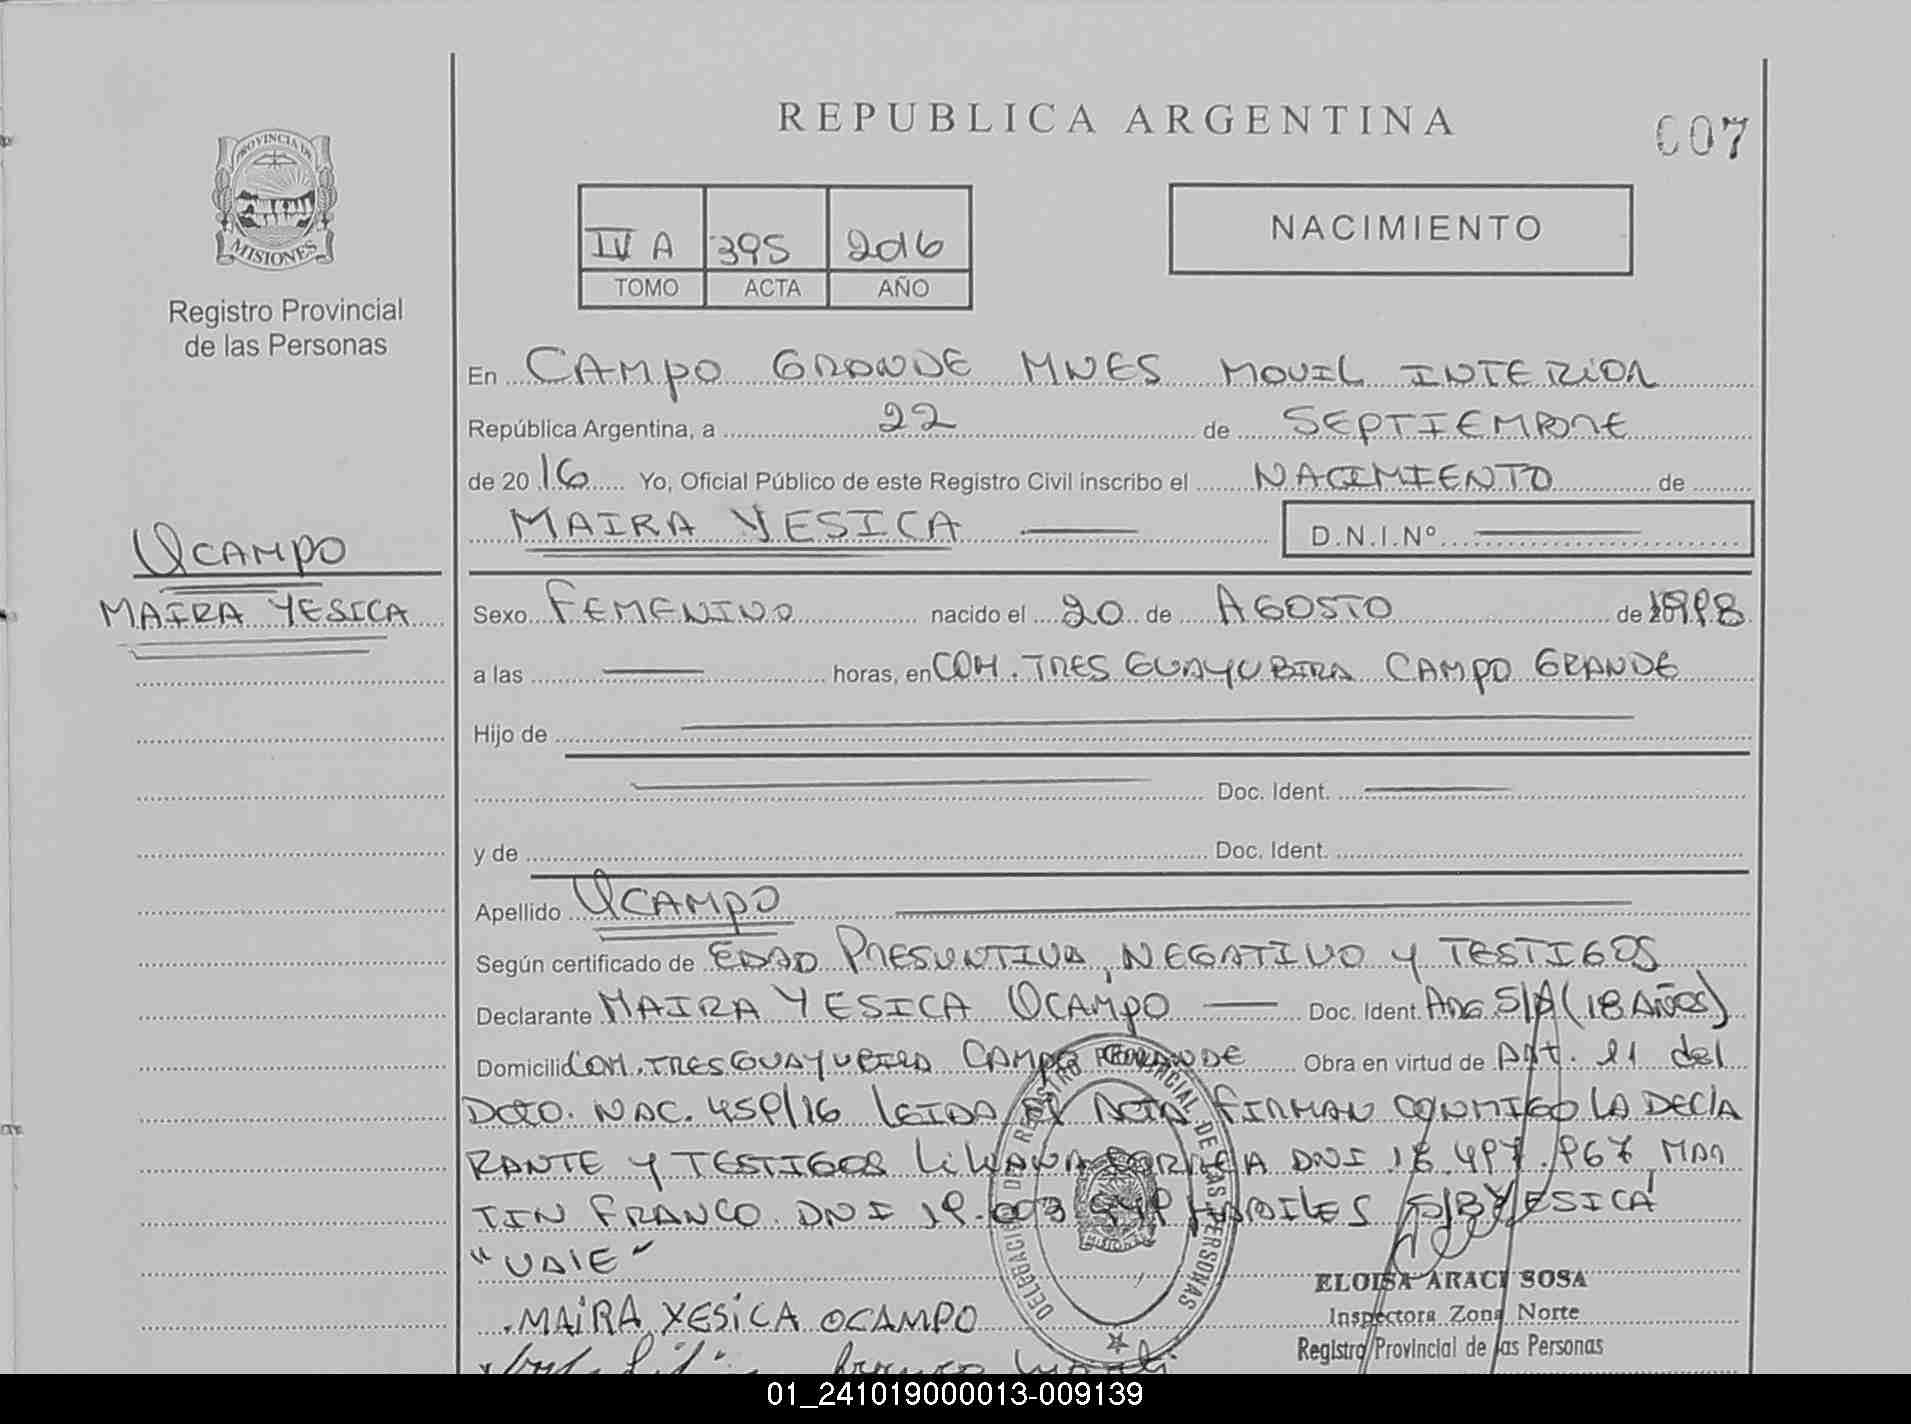 REPUBLICA ARGENTINA
007
PROVINCIA DE
MISIONES
Registro Provincial
de las Personas
IV A 395 2016
TOMO ACTA AÑO
NACIMIENTO
En CAMPO GRANDE MNES MOVIL INTERIOR
República Argentina, a 22 de SEPTIEMBRE
de 2016 Yo, Oficial Público de este Registro Civil inscribo el NACIMIENTO de
MAIRA YESICA
D.N.I.Nº
OCAMPO
MAIRA YESICA
Sexo FEMENINO nacido el 20 de AGOSTO de 1998
a las horas, en COM. TRES GUAYUBIRA CAMPO GRANDE
Hijo de
Doc. Ident.
y de Doc. Ident.
Apellido OCAMPO
Según certificado de EDAD PRESUNTIVA, NEGATIVO Y TESTIGOS
Declarante MAIRA YESICA OCAMPO Doc. Ident. ARG (18 AÑOS)
Domicilio COM. TRES GUAYUBIRA CAMPO GRANDE Obra en virtud de ART. 11 del
DCTO. NAC. 459/16 LEIDA EL ACTA FIRMAN CONMIGO LA DECLA
RANTE Y TESTIGOS LILIANA DNI MAR
TIN FRANCO DNI 19.003 HABILES S/BY ESICA
"VALE"
MAIRA YESICA OCAMPO
DELEGACION DE REGISTRO PROVINCIAL DE LAS PERSONAS
MISIONES
ELOISA ARACI SOSA
Inspectora Zona Norte
Registro Provincial de las Personas
01_241019000013-009139